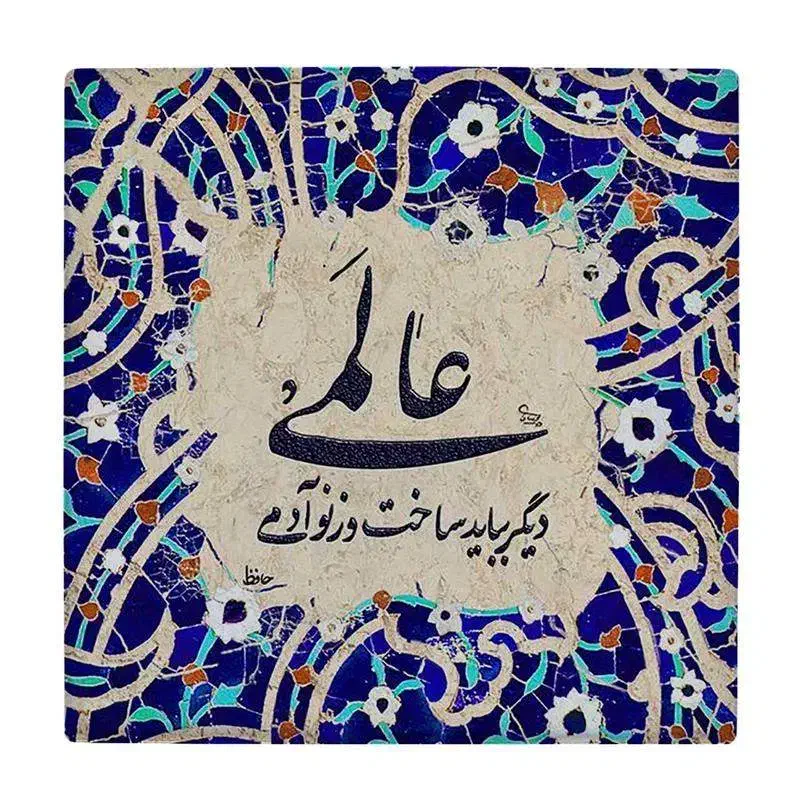 عالمی
دیگر بباید ساخت وز نو آدمی
حافظ